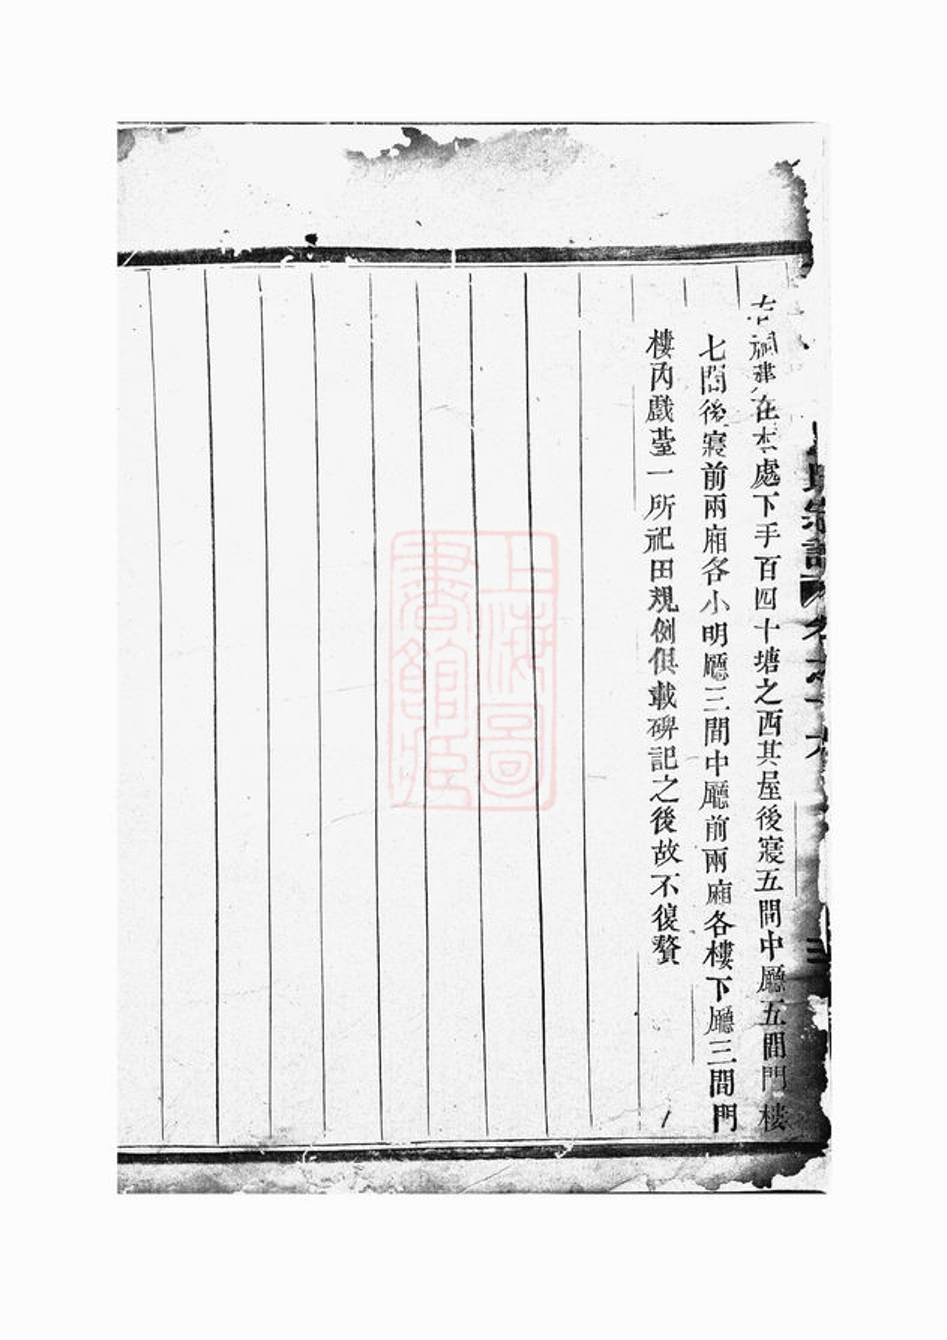 右祠建在本處下手百四十塘之西其屋後寢五間中廳五間門樓
七間後寢前兩廂各小明廳三間中廳前兩廂各樓下廳三間門
樓內戲臺一所祀田規例俱載碑記之後故不復贅
宗譜
上海圖
書館藏